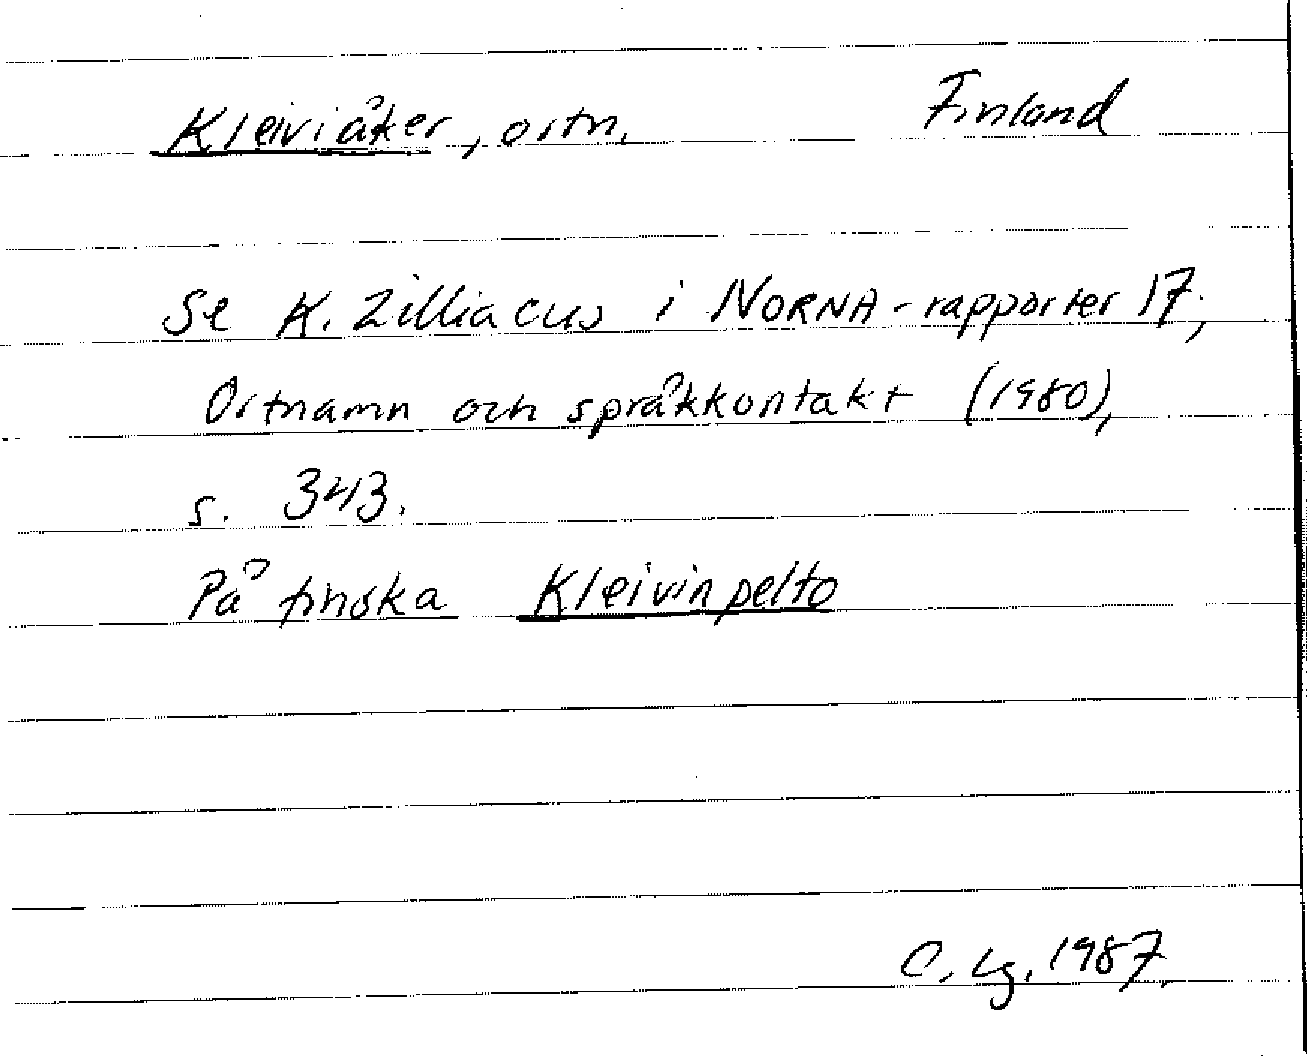 Kleiviåker, ortn. Finland
Se K. Zilliacus i NORNA-rapporter 17;
Ortnamn och språkkontakt (1980),
s. 343.
På finska Kleivinpelto
C. Lg. 1987.